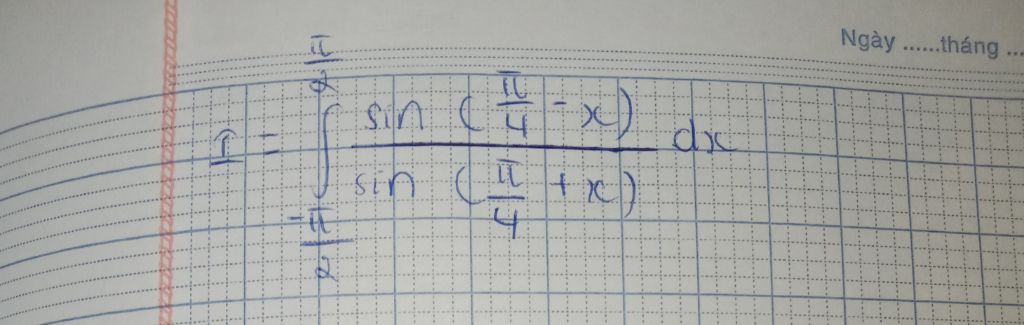 Ngày ......tháng ...
I = ∫_{-π/2}^{π/2} \frac{sin (π/4 - x)}{sin (π/4 + x)} dx